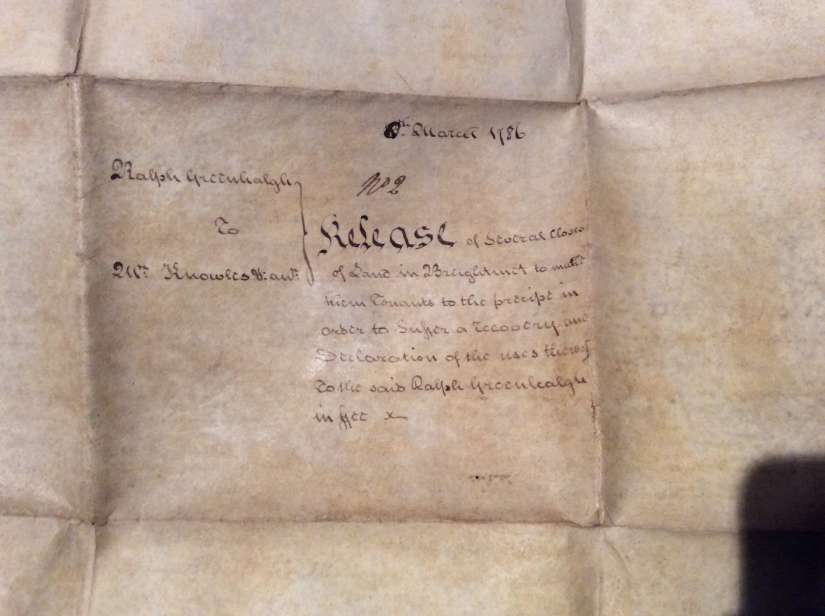 th. March 1786
Ralph Greenhalgh
No 2
To
Release of Several Closes
Mr. Knowles & anr.
of Land in Breightmet to make
them Tenants to the precipe in
order to Suffer a Recovery and
Declaration of the uses thereof
To the said Ralph Greenhalgh
in ffee